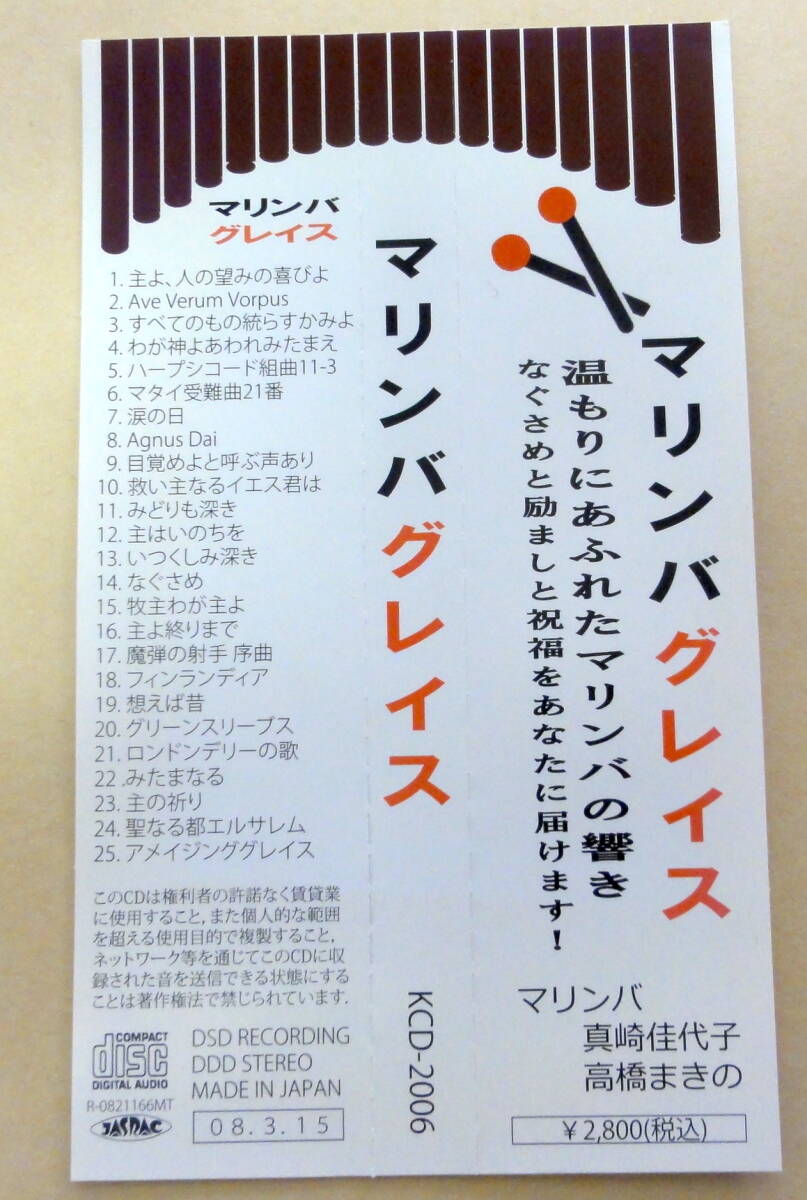 マリンバ
グレイス
1. 主よ、人の望みの喜びよ
2. Ave Verum Vorpus
3. すべてのもの統らすかみよ
4. わが神よあわれみたまえ
5. ハープシコード組曲11-3
6. マタイ受難曲21番
7. 涙の日
8. Agnus Dai
9. 目覚めよと呼ぶ声あり
10. 救い主なるイエス君は
11. みどりも深き
12. 主はいのちを
13. いつくしみ深き
14. なぐさめ
15. 牧主わが主よ
16. 主よ終りまで
17. 魔弾の射手 序曲
18. フィンランディア
19. 想えば昔
20. グリーンスリーブス
21. ロンドンデリーの歌
22 .みたまなる
23. 主の祈り
24. 聖なる都エルサレム
25. アメイジンググレイス
このCDは権利者の許諾なく賃貸業
に使用すること，また個人的な範囲
を超える使用目的で複製すること，
ネットワーク等を通じてこのCDに収
録された音を送信できる状態にする
ことは著作権法で禁じられています．
COMPACT
disc
DIGITAL AUDIO
R-0821166MT
JASRAC
DSD RECORDING
DDD STEREO
MADE IN JAPAN
08.3.15
マリンバグレイス
KCD-2006
マリンバグレイス
温もりにあふれたマリンバの響き
なぐさめと励ましと祝福をあなたに届けます！
マリンバ
真崎佳代子
高橋まきの
￥2,800(税込)